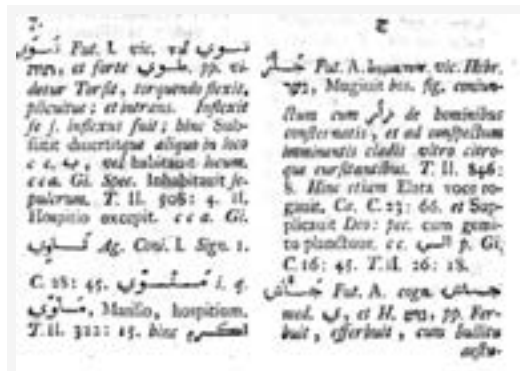 Fut. I. vic. vel
et forte طوى. pp. vi-
detur Torsit, torquendo flexit,
plicuitue; et intrans. Inflexit
se s. inflexus fuit; hinc Sub-
sistit diuertitque aliquo in loco
c c. ب, vel habitauit locum.
c c a. Gi. Spec. Inhabitauit se-
pulcrum. T. II. 308: 4. it.
Hospitio excepit. c c a. Gi.
ثَاوِى Ag. Coni. I. Sign. 1.
C. 28: 45. مَثْوَى i. q.
مَأْوَى, Mansio, hospitium.
T. II. 322: 15. hinc
ج
Fut. A. vic. Hebr.
Mugiit bos. fig. coniun-
ctum cum de hominibus
consternatis, et ad conspectum
imminentis cladis vltro citro-
que cursitantibus. T. II. 846:
8. Hinc etiam Elata voce ro-
gauit. Co. C. 23: 66. et Sup-
plicauit Deo: pec. cum gemi-
tu planctuue. cc. الى p. Gi.
C. 16: 45. T. II. 26: 18.
جَأَشَ Fut. A. cogn. جاش
med. ى, et H. pp. Fer-
buit, efferbuit, cum bullitu
aestu-